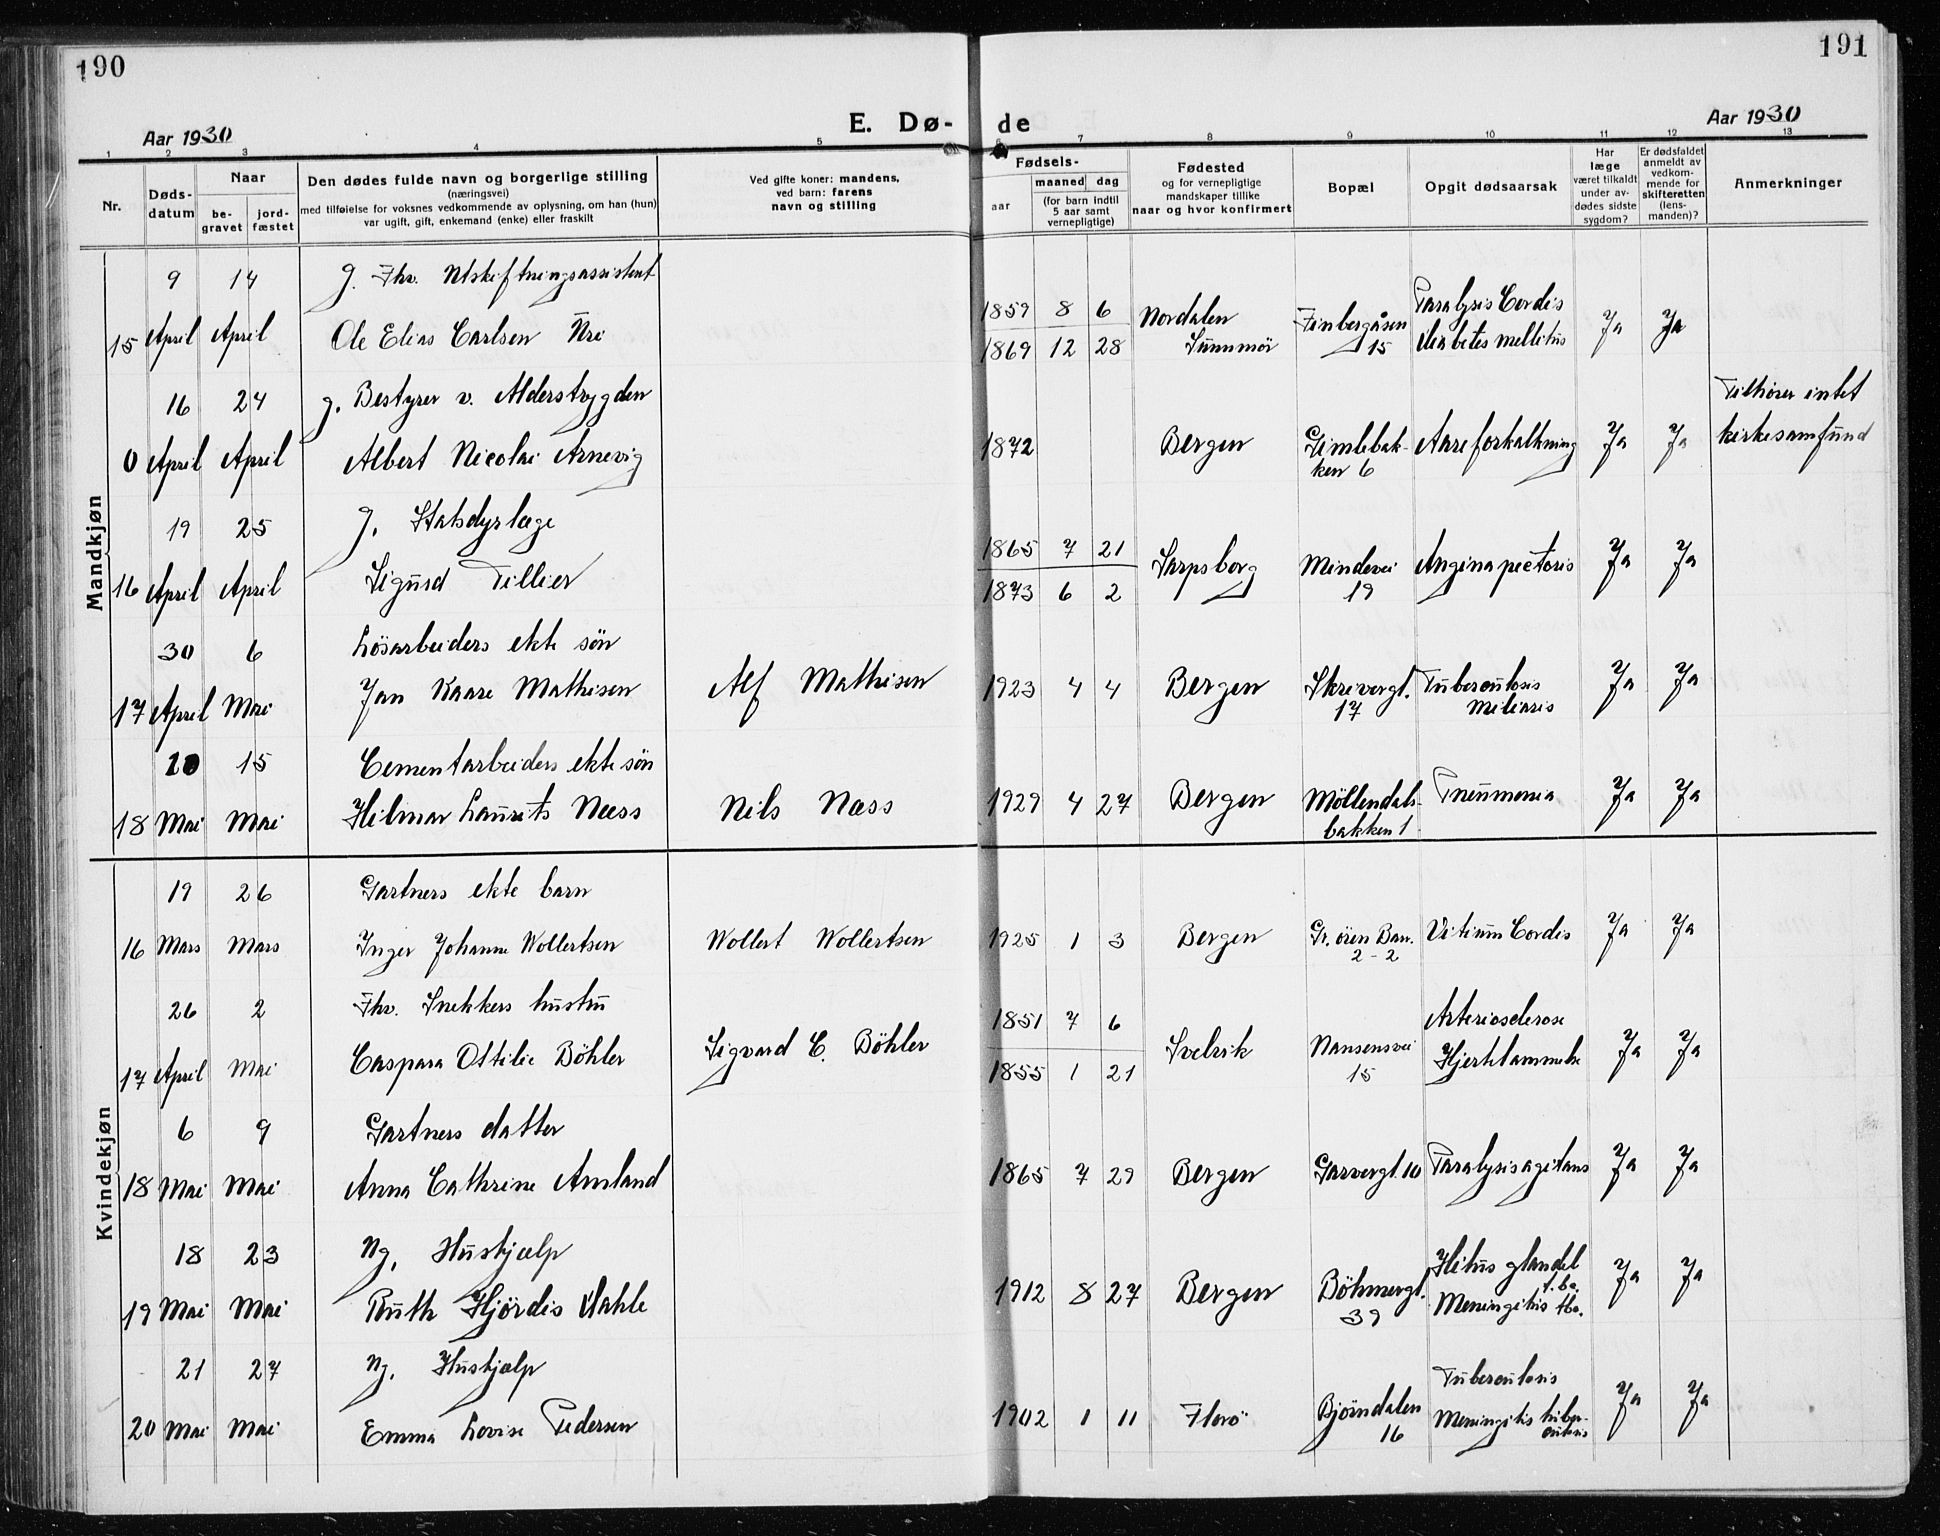 190
191
E. Dø- de
Aar 1930
Aar 1930
1 2 3 4 5 6 7 8 9 10 11 12 13
Nr.
Døds-datum
Naar
be-gravet
jord-fæstet
Den dødes fulde navn og borgerlige stilling
(næringsvei)
med tilføielse for voksnes vedkommende av oplysning, om han (hun)
var ugift, gift, enkemand (enke) eller fraskilt
Ved gifte koner: mandens,
ved barn: farens
navn og stilling
Fødsels-
aar
maaned dag
(for barn indtil
5 aar samt
vernepligtige)
Fødested
og for vernepligtige
mandskaper tillike
naar og hvor konfirmert
Bopæl
Opgit dødsaarsak
Har
læge
været tilkaldt
under av-
dødes sidste
sygdom?
Er dødsfaldet
anmeldt av
vedkom-
mende for
skifteretten
(lens-
manden)?
Anmerkninger
Mandkjøn
9 14 g. Fhv. Utskiftningsassistent
15 April April Ole Elias Carlsen Uri
1859 8 6
1869 12 28
Nordalen
Sunnmör
Finbergåsen
15
Paralysis Cordis
diabetes mellitus
Ja Ja
16 24 g. Bestyrer v. Alderstrygden
0 April April Albert Nicolai Arnevig
1872 Bergen
Gimlebak-
ken 6
Aareforkalkning Ja Ja
Tilhører intet
kirkesamfund
19 25 g. Statsdyrlæge
16 April April Sigurd Tillier
1865 7 21
1873 6 2
Sarpsborg
Mindevei
19
Angina pectoris Ja Ja
30 6 Løsarbeiders ekte søn
17 April Mai Jan Kaare Mathisen Alf Mathisen
1923 4 4 Bergen
Skrivergt.
17
Tuberculosis
miliaris
Ja Ja
15 Cementarbeiders ekte søn
18 Mai Mai Hilmar Laurits Næss Nils Næss
1929 4 27 Bergen
Möllendals-
bakken 1
Pneumonia Ja Ja
Kvindekjøn
19 26 Gartners ekte barn
16 Mars Mars Inger Johanne Wollertsen Wollert Wollertsen
1925 1 3 Bergen
Gr. ören Bar.
2-2
Vitium Cordis Ja Ja
26 2 Fhv. Snekkers hustru
17 April Mai Caspara Ottilie Böhler Sigvard C. Böhler
1851 7 6
1855 1 21
Svelvik
Nansensvei
15
Arteriosclerose
Hjertelammelse
Ja Ja
6 9 Gartners datter
18 Mai Mai Anna Cathrine Amland
1865 7 29 Bergen Garvergt. 10 Paralysis agitans Ja Ja
18 23 Ug. Hushjælp
19 Mai Mai Ruth Hjördis Dahle
1912 8 27 Bergen
Böhmergt.
39
glandel
t.bc.
Meningitis tbc.
Ja Ja
21 27 Ug. Hushjælp
20 Mai Mai Emma Lovise Pedersen
1902 1 11 Florö
Bjørndalen
16
Tuberculosis
Meningitis tuber-
culosis
Ja Ja